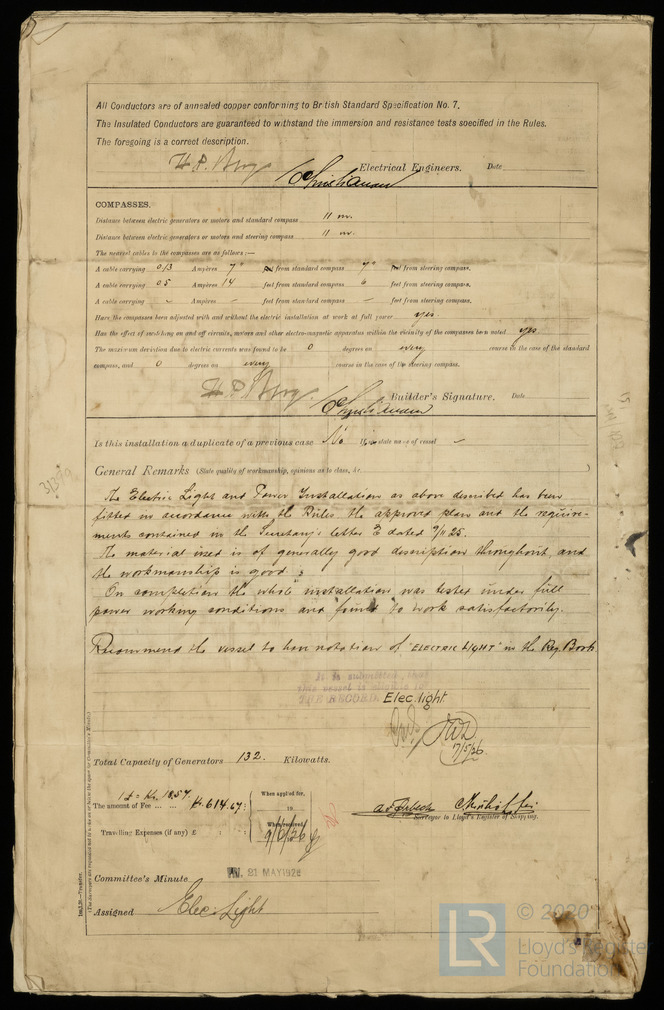 All Conductors are of annealed copper conforming to British Standard Specification No. 7.
The Insulated Conductors are guaranteed to withstand the immersion and resistance tests specified in the Rules.
The foregoing is a correct description.
Electrical Engineers. Date
COMPASSES.
Distance between electric generators or motors and standard compass 11 m.
Distance between electric generators or motors and steering compass 11 m.
The nearest cables to the compasses are as follows:—
A cable carrying 0/3 Ampères 7" feet from standard compass 7" feet from steering compass.
A cable carrying 05 Ampères 14 feet from standard compass 6 feet from steering compass.
A cable carrying - Ampères - feet from standard compass - feet from steering compass.
Have the compasses been adjusted with and without the electric installation at work at full power yes
Has the effect of switching on and off circuits, motors and other electro-magnetic apparatus within the vicinity of the compasses been noted yes
The maximum deviation due to electric currents was found to be 0 degrees on every course in the case of the standard
compass, and 0 degrees on every course in the case of the steering compass.
Builder's Signature. Date
Is this installation a duplicate of a previous case No If so, state name of vessel -
General Remarks (State quality of workmanship, opinions as to class, &c. )
The Electric Light and Power Installation as above described has been
fitted in accordance with the Rules the approved plans and the require-
ments contained in the Secretary's letter E dated 9/11 25.
The material used is of generally good description throughout, and
the workmanship is good.
On completion the whole installation was tested under full
power working conditions and found to work satisfactorily.
Recommend the vessel to have notation of "ELECTRIC LIGHT" in the Reg. Book
It is submitted that
this vessel is eligible for
THE RECORD. Elec. light.
7/5/26.
Total Capacity of Generators 132. Kilowatts.
1£ = Kr. 18,57.
The amount of Fee ... ... Kr. 614.67: When applied for, 19
Travelling Expenses (if any) £ : : When received,
Surveyor to Lloyd's Register of Shipping.
Committee's Minute 21 MAY 1926
Assigned Elec: Light
© 2020
Lloyd's Register
Foundation
LR